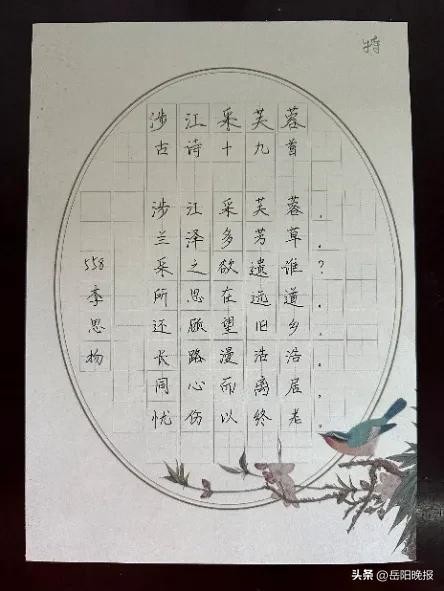 特
涉江采芙蓉
古诗十九首
涉江采芙蓉，
兰泽多芳草。
采之欲遗谁？
所思在远道。
还顾望旧乡，
长路漫浩浩。
同心而离居，
忧伤以终老。
558李思扬
头条 @岳阳晚报